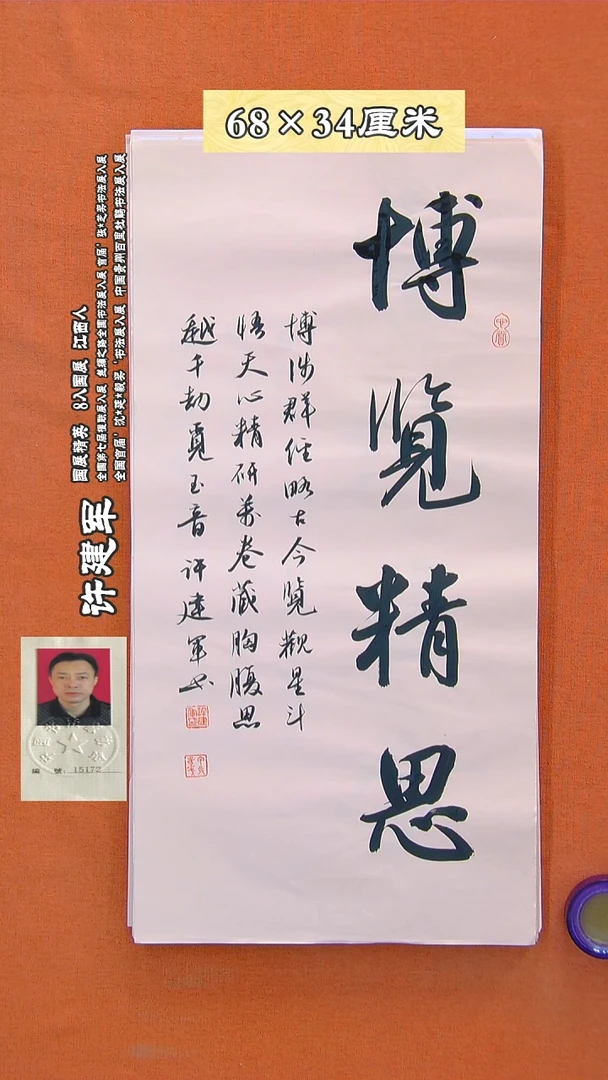 68×34厘米
博览精思
博涉群经略古今覽觀星斗
悟天心精研萬卷藏胸臆思
越千劫覓玉音 许建军书
许建军
国展精英 8入国展 江西人
全国第七届楹联展入展 丝绸之路全国书法展入展 首届'张*芝奖书法展入展
全国首届'沈*延*毅奖'书法展入展 中国贵州百里杜鹃书法展入展
编 號: 15172